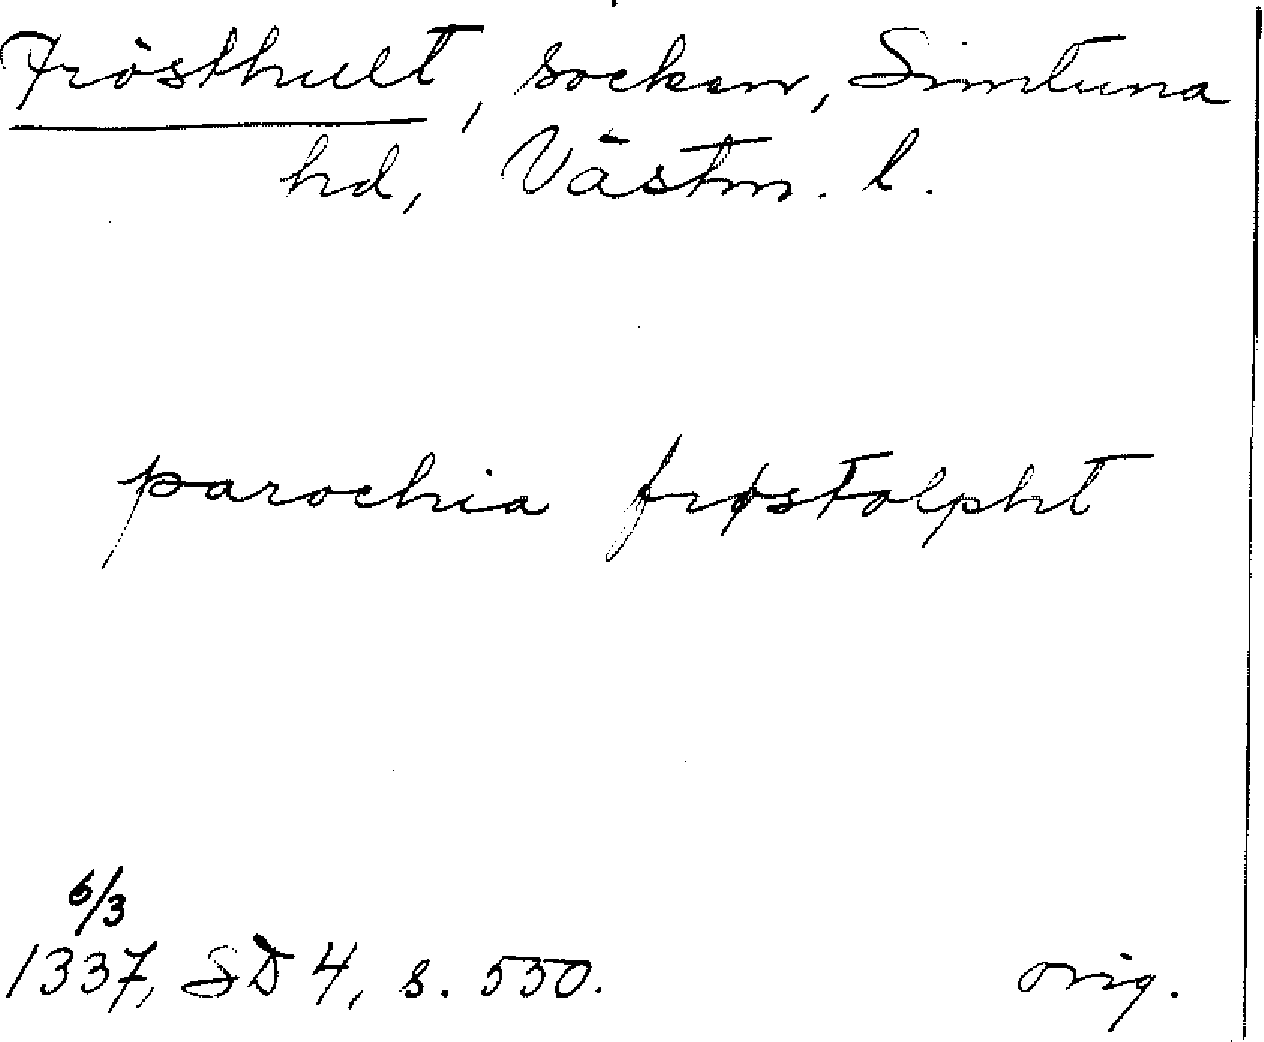 Frösthult, socken, Simtuna
hd, Västm. l.
parochia frøstolpht
6/3
1337, SD 4, s. 550. orig.